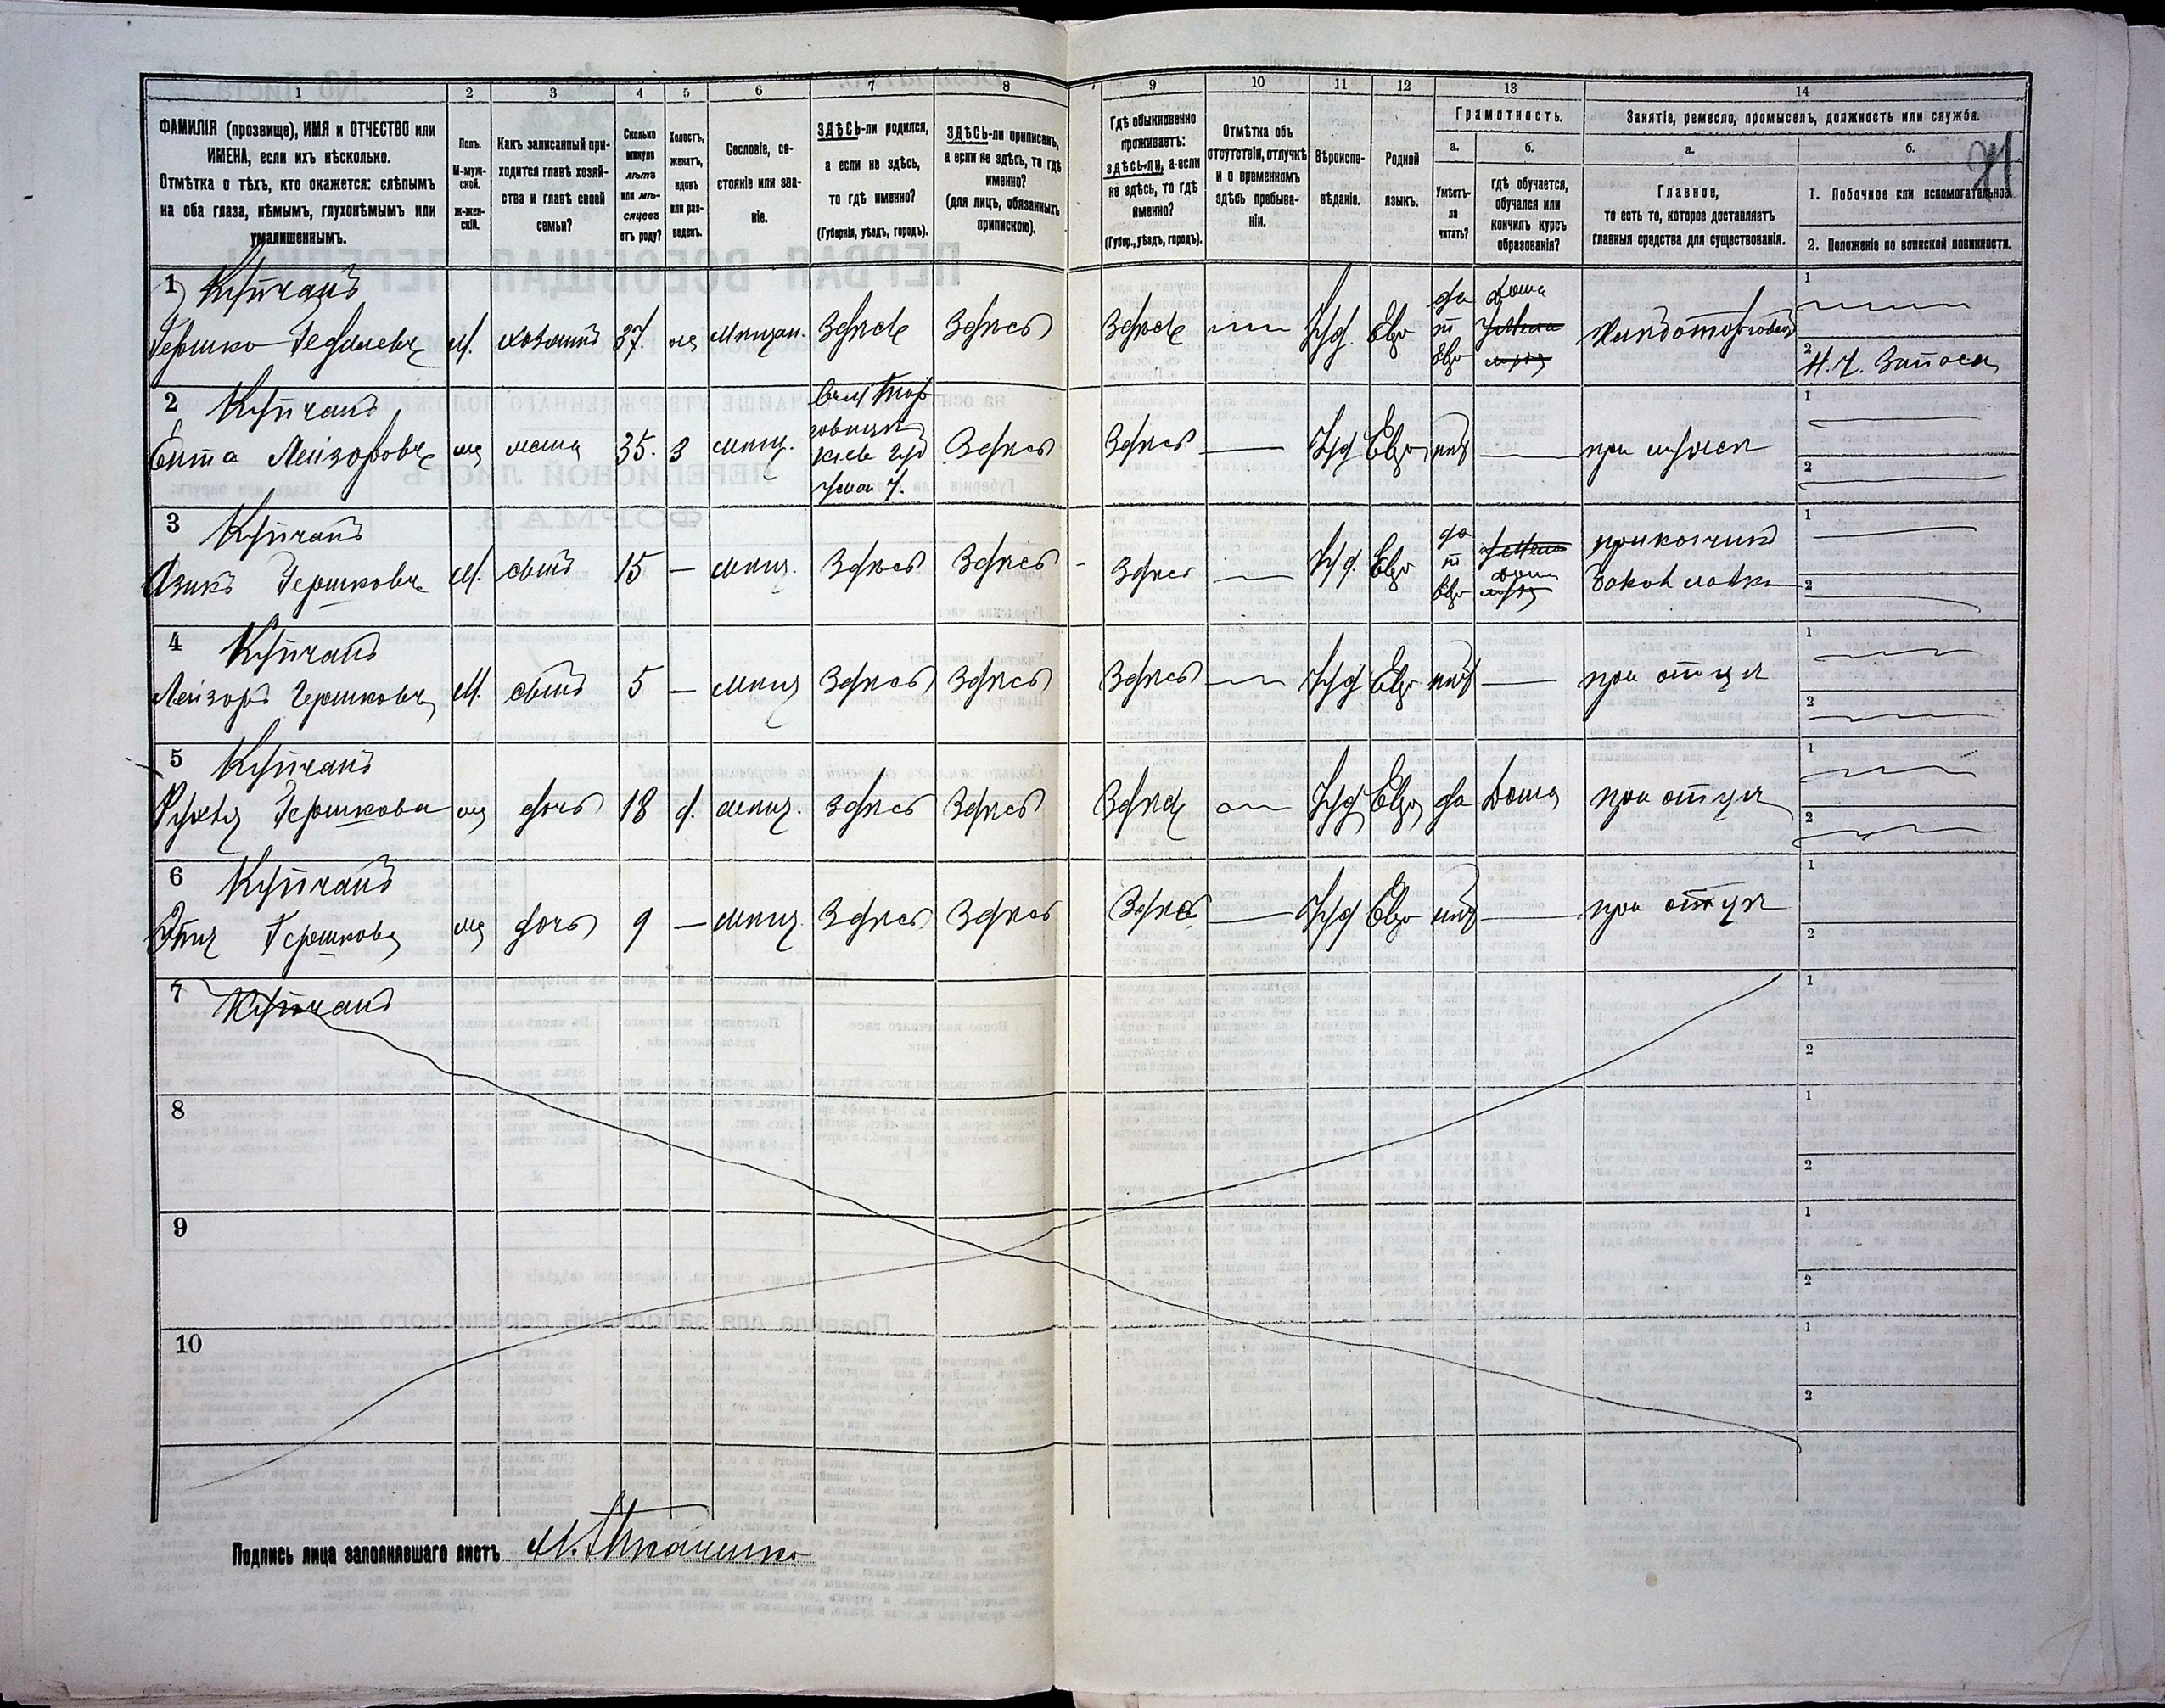 1 2 3 4 5 6 7 8 9 10 11 12 13 14
ФАМИЛІЯ (прозвище), ИМЯ и ОТЧЕСТВО или
ИМЕНА, если ихъ нѣсколько.
Отмѣтка о тѣхъ, кто окажется: слѣпымъ
на оба глаза, нѣмымъ, глухонѣмымъ или
умалишеннымъ.
Полъ.
М-муж-
ской.
Ж-жен-
скій.
Какъ записанный при-
ходится главѣ хозяй-
ства и главѣ своей
семьи?
Сколько
минуло
лѣтъ
или мѣ-
сяцевъ
отъ роду?
Холостъ,
женатъ,
вдовъ
или раз-
веденъ.
Сословіе, со-
стояніе или зва-
ніе.
ЗДѢСЬ-ли родился,
а если не здѣсь,
то гдѣ именно?
(Губернія, уѣздъ, городъ).
ЗДѢСЬ-ли приписанъ,
а если не здѣсь, то гдѣ
именно?
(для лицъ, обязанныхъ
припискою).
Гдѣ обыкновенно
проживаетъ:
ЗДѢСЬ-ли, а если
не здѣсь, то гдѣ
именно?
(Губер., уѣздъ, городъ).
Отмѣтка объ
отсутствіи, отлучкѣ
и о временномъ
здѣсь пребыва-
ніи.
Вѣроиспо-
вѣданіе.
Родной
языкъ.
Грамотность.
а.
Умѣетъ-
ли
читать?
б.
гдѣ обучается,
обучался или
кончилъ курсъ
образованія?
Занятіе, ремесло, промыселъ, должность или служба.
а.
Главное,
то есть то, которое доставляетъ
главныя средства для существованія.
б.
1. Побочное или вспомогательное.
2. Положеніе по воинской повинности.
1 Купчанъ
Гершко Гедалевъ М. хозяинъ 37. жа Мѣщан. Здѣсь Здѣсь Здѣсь Іуд. Евр
да по Евр
Дома
1
2 Н. Ч. Запаса
2 Купчанъ
Ента Лейзоровъ жа жена 35. З мѣщ.
Кіев губ
Уман у.
Здѣсь Здѣсь — Іуд Евр нѣтъ — при мужѣ
1
2
3 Купчанъ
Азикъ Гершковъ М. сынъ 15 — мѣщ. Здѣсь Здѣсь Здѣсь — Іуд. Евр
да по Евр
Дома
прикащикъ
бакал лавки
1
2
4 Купчанъ
Лейзоръ Гершковъ М. сынъ 5 — мѣщ Здѣсь Здѣсь Здѣсь — Іуд Евр нѣтъ — при отцѣ
1
2
5 Купчанъ
Рухля Гершкова жа дочь 18 д. мѣщ. Здѣсь Здѣсь Здѣсь — Іуд Евр да Дома при отцѣ
1
2
6 Купчанъ
Этя Гершкова жа дочь 9 — мѣщ. Здѣсь Здѣсь Здѣсь — Іуд Евр нѣтъ — при отцѣ
1
2
7 Купчанъ
1
2
8
1
2
9
1
2
10
1
2
Подпись лица заполнявшаго листъ М. Ткаченко